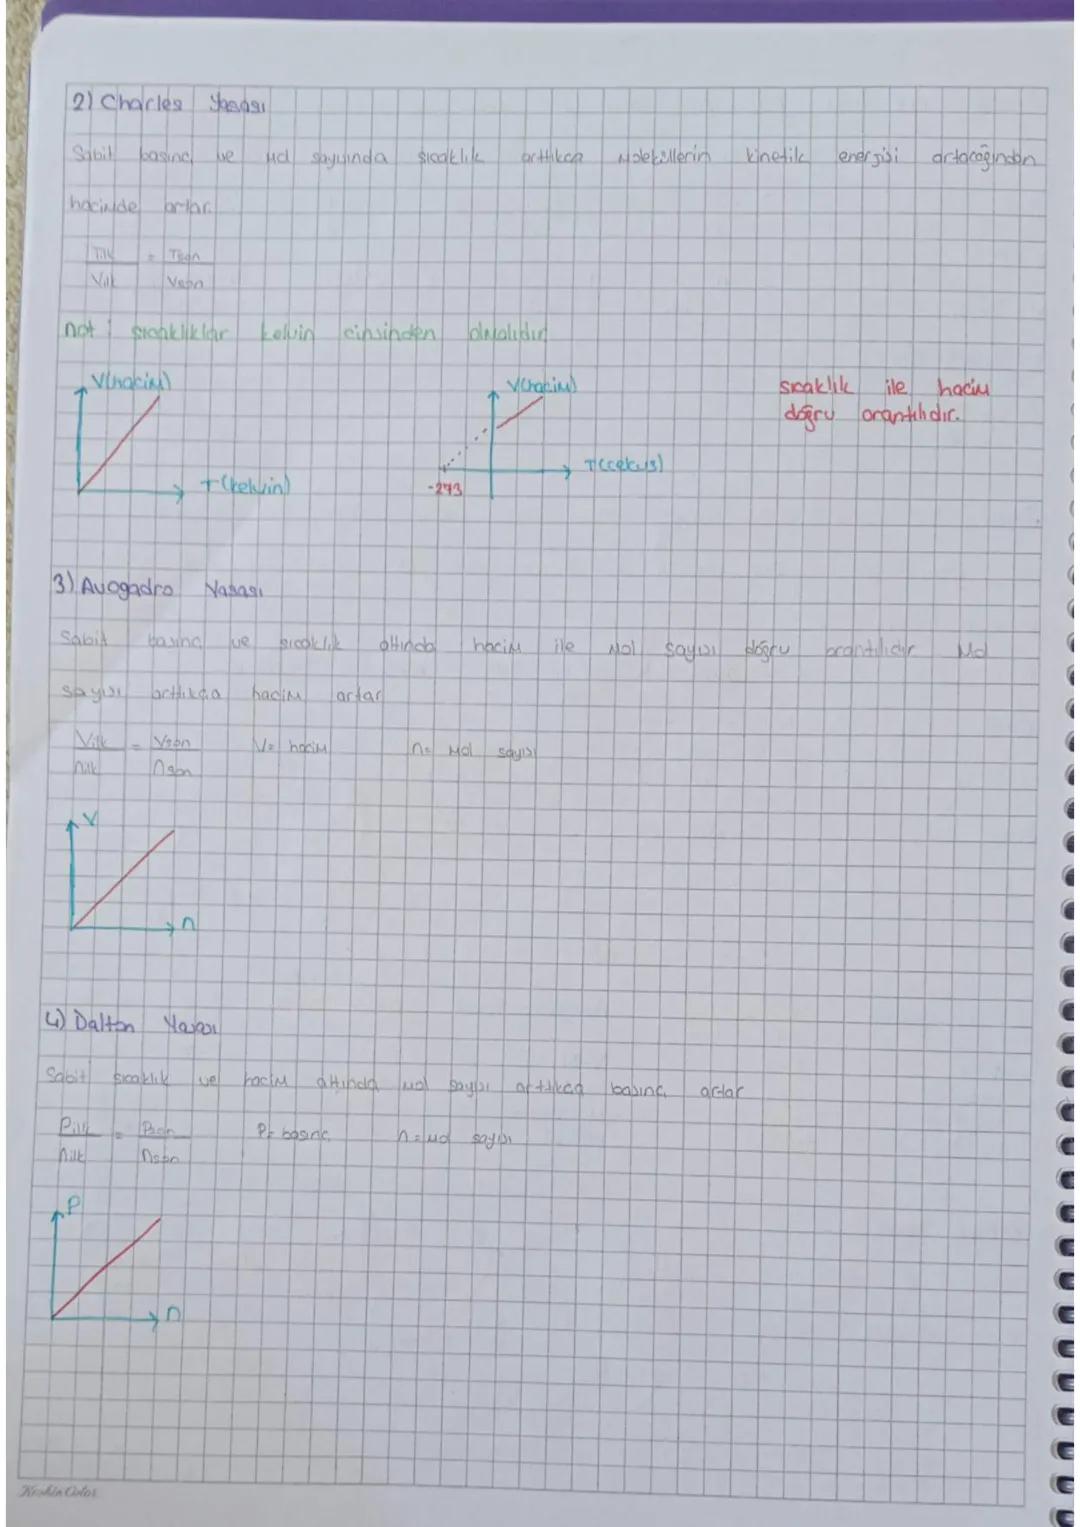 2) Charles Yasası
Sabit basınç ve mol sayısında sıcaklık arttıkça moleküllerin kinetik enerjisi artacağından
hacimde artar.
Tilk = Tson
Vilk Vson
not: sıcaklıklar kelvin cinsinden olmalıdır
V(hacim)
T(kelvin)
V(hacim)
T(celcius)
-273
sıcaklık ile hacim
doğru orantılıdır.
3) Avogadro Yasası
Sabit basınç ve sıcaklık altında hacim ile mol sayısı doğru orantılıdır Mol
sayısı arttıkça hacim artar
Vilk = Vson V= hacim n= mol sayısı
nilk nson
V
n
4) Dalton Yasası
Sabit sıcaklık ve hacim altında mol sayısı arttıkça basınç artar
Pilk = Pson P= basınç n= mol sayısı
nilk nson
P
n
Keskin Color